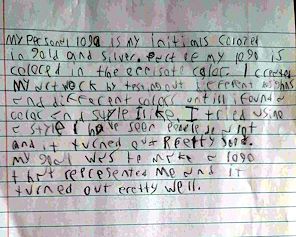 My Personal logo is my initials colored
in gold and silver. Part of my logo is
colored in the oppisote color. I created
My art work by testing out different designs
and different colors untill i found a
color and style I like. I tried using
a style I have seen people do a lot
and it turned out Pretty good.
my goal was to make a logo
that represented me and it
turned out pretty well.